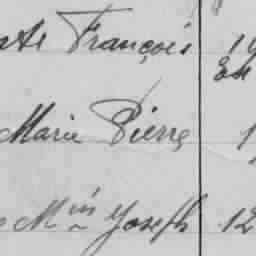 te François 19
Marie Pierre 1
Min Joseph 12